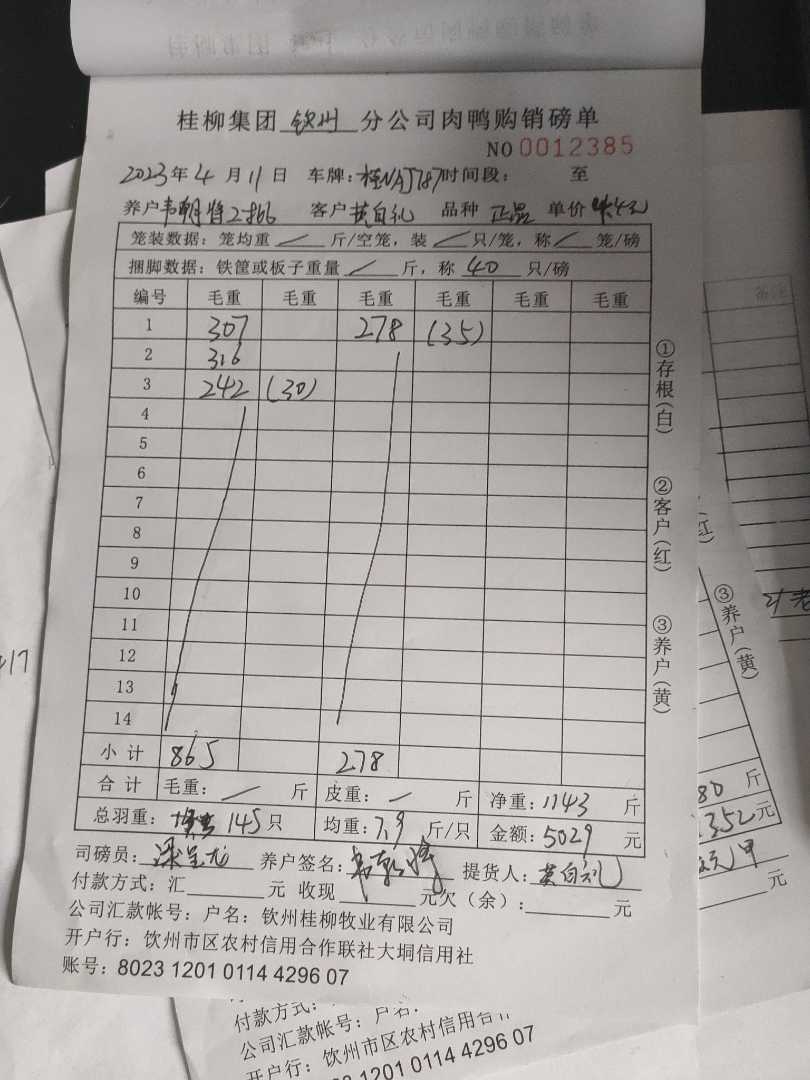 桂柳集团 钦州 分公司肉鸭购销磅单
NO 0012385
2023年 4 月 11 日 车牌: 桂NAJ787 时间段: 至
养户 韦朝将 客户 黄自礼 品种 正品 单价
笼装数据: 笼均重 / 斤/空笼, 装 / 只/笼, 称 / 笼/磅
捆脚数据: 铁筐或板子重量 / 斤, 称 40 只/磅
编号 毛重 毛重 毛重 毛重 毛重 毛重
1 307 278 (35)
2 316
3 242 (30)
4
5
6
7
8
9
10
11
12
13
14
小 计 865 278
合 计 毛重: / 斤 皮重: / 斤 净重: 1143 斤
总羽重: 145 只 均重: 7.9 斤/只 金额: 5029 元
司磅员: 养户签名: 韦朝将 提货人: 黄自礼
付款方式: 汇 元 收现 元欠(余): 元
公司汇款帐号: 户名: 钦州桂柳牧业有限公司
开户行: 钦州市区农村信用合作联社大垌信用社
账号: 8023 1201 0114 4296 07
①存根(白)
②客户(红)
③养户(黄)
(红)
③养户(黄)
80 斤
352 元
元
417
付款方式:
公司汇款帐号: 户名:
开户行: 钦州市区农村信用合
8023 1201 0114 4296 07